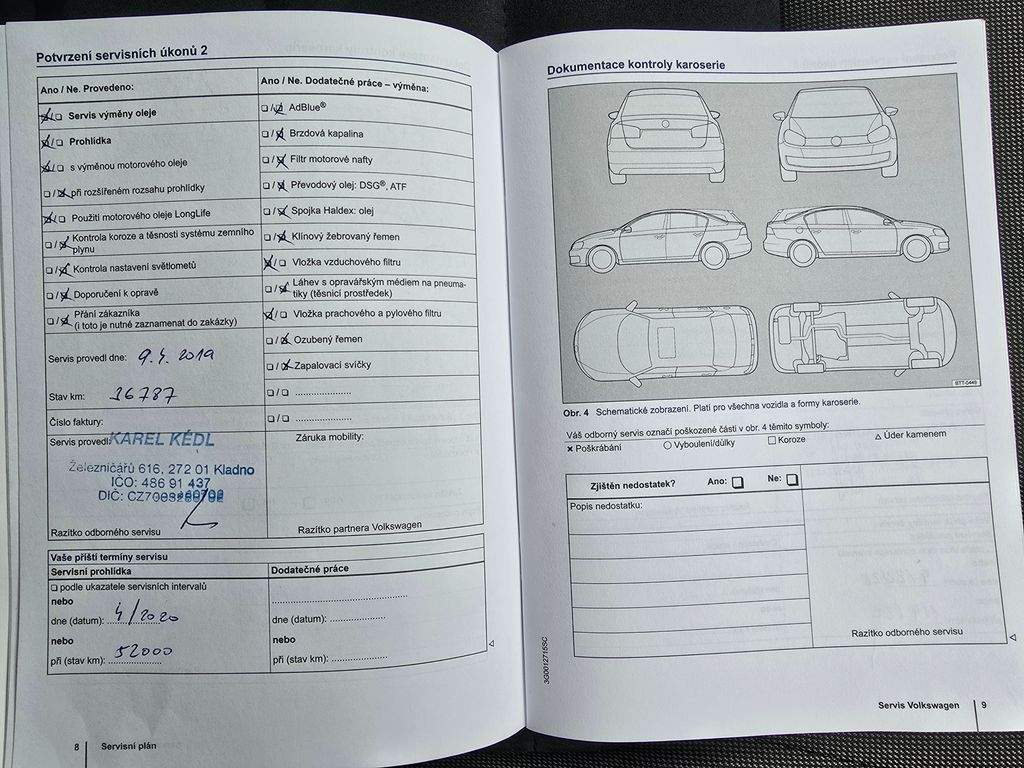 Potvrzení servisních úkonů 2
Ano / Ne. Provedeno:
Servis výměny oleje
Prohlídka
s výměnou motorového oleje
při rozšířeném rozsahu prohlídky
Použití motorového oleje LongLife
Kontrola koroze a těsnosti systému zemního
plynu
Kontrola nastavení světlometů
Doporučení k opravě
Přání zákazníka
(i toto je nutné zaznamenat do zakázky)
Servis provedl dne: 9.4. 2019
Stav km: 36787
Číslo faktury:
Servis provedl:
KAREL KÉDL
Železničářů 616, 272 01 Kladno
IČO: 486 91 437
DIČ:
Razítko odborného servisu
Ano / Ne. Dodatečné práce – výměna:
AdBlue®
Brzdová kapalina
Filtr motorové nafty
Převodový olej: DSG®, ATF
Spojka Haldex: olej
Klínový žebrovaný řemen
Vložka vzduchového filtru
Láhev s opravářským médiem na pneuma-
tiky (těsnicí prostředek)
Vložka prachového a pylového filtru
Ozubený řemen
Zapalovací svíčky
Záruka mobility:
Razítko partnera Volkswagen
Vaše příští termíny servisu
Servisní prohlídka
podle ukazatele servisních intervalů
nebo
dne (datum): 4/2020
nebo
při (stav km): 52000
Dodatečné práce
dne (datum):
nebo
při (stav km):
8 Servisní plán
Dokumentace kontroly karoserie
BTT-0449
Obr. 4 Schematické zobrazení. Platí pro všechna vozidla a formy karoserie.
Váš odborný servis označí poškozené části v obr. 4 těmito symboly:
Poškrábání Vyboulení/důlky Koroze Úder kamenem
Zjištěn nedostatek? Ano: Ne:
Popis nedostatku:
Razítko odborného servisu
3G0012715SC
Servis Volkswagen 9